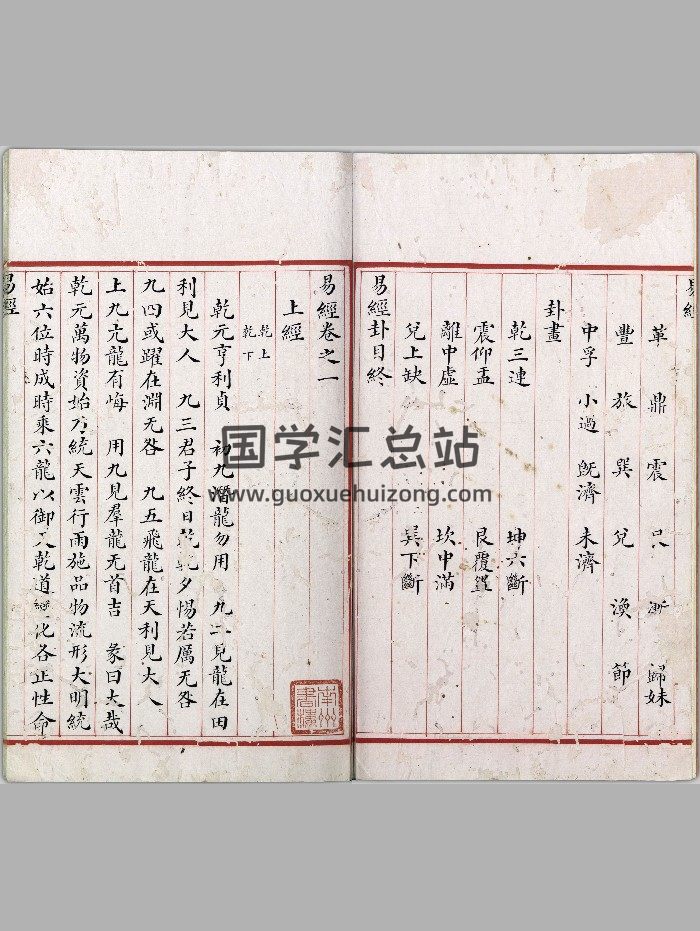 易經
革 鼎 震 艮 漸 歸妹
豐 旅 巽 兌 渙 節
中孚 小過 既濟 未濟
卦畫
乾三連 坤六斷
震仰盂 艮覆
離中虛 坎中滿
兌上缺 巽下斷
易經卦目終
易經卷之一
上經
乾上
乾下
乾元亨利貞 初九潛龍勿用 九二見龍在田
利見大人 九三君子終日乾乾夕惕若厲无咎
九四或躍在淵无咎 九五飛龍在天利見大人
上九亢龍有悔 用九見羣龍无首吉 彖曰大哉
乾元萬物資始乃統天雲行雨施品物流形大明終
始六位時成時乘六龍以御天乾道變化各正性命
易經
南州書樓
国学汇总站
www.guoxuehuizong.com